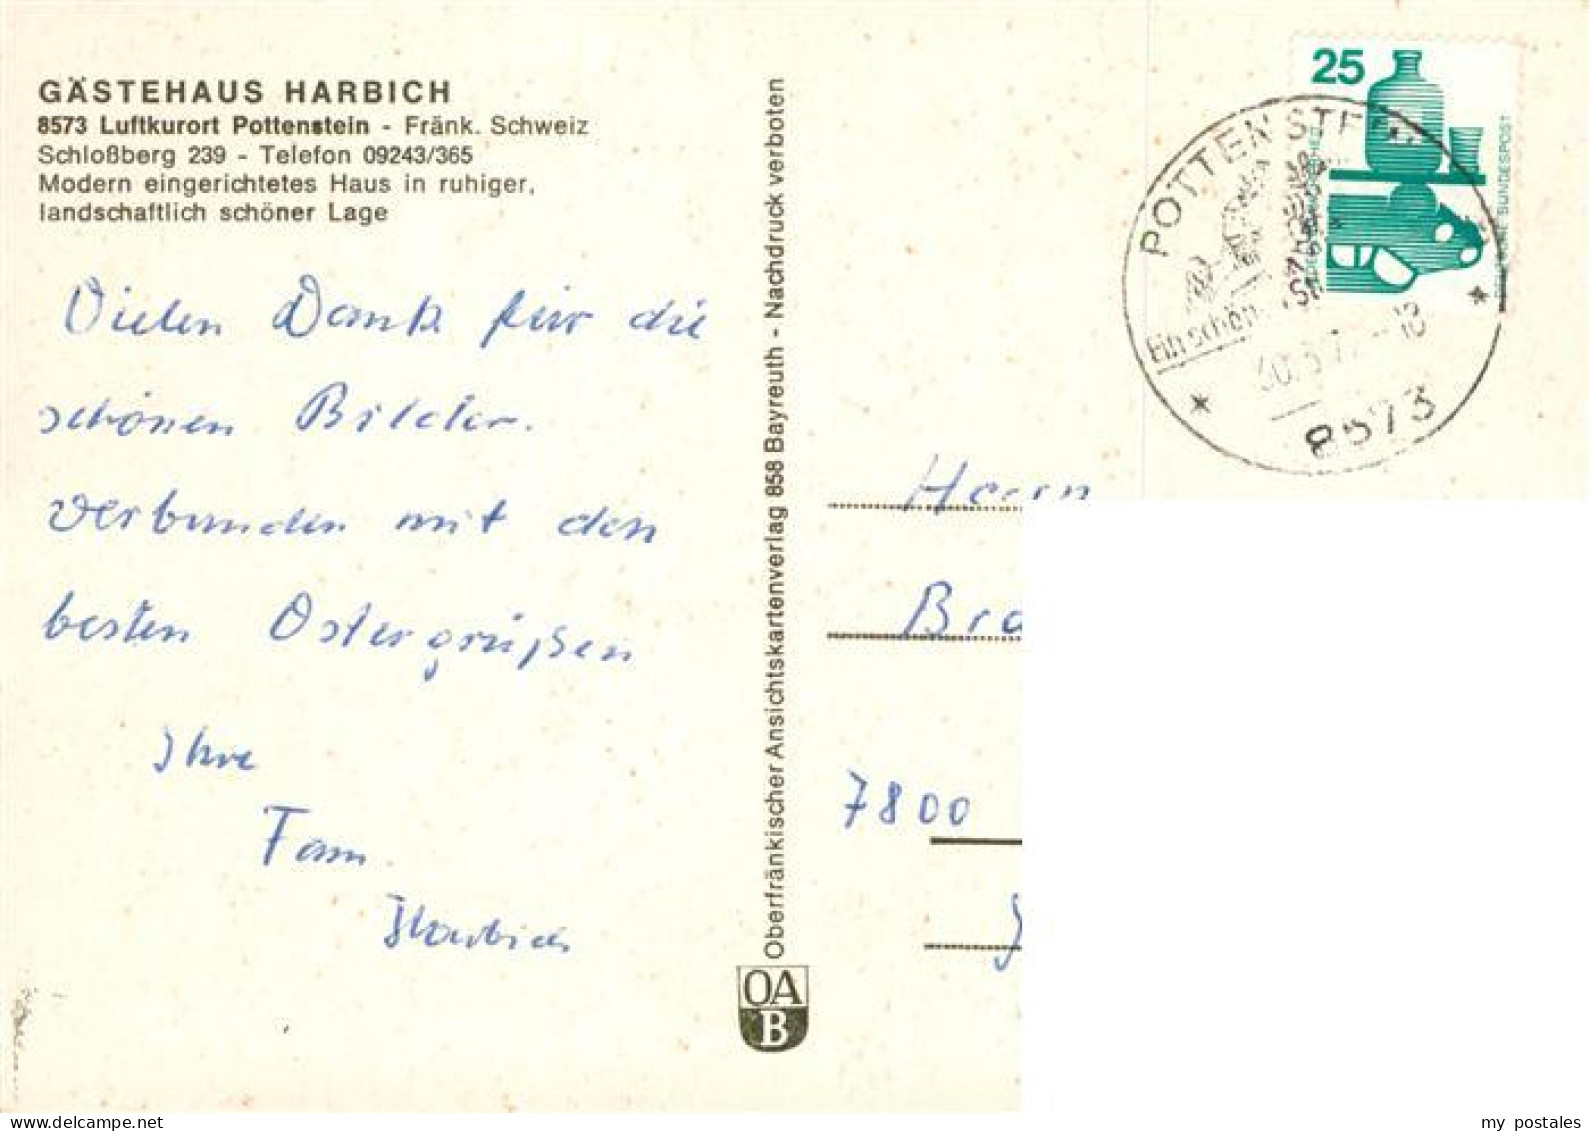 GÄSTEHAUS HARBICH
8573 Luftkurort Pottenstein - Fränk. Schweiz
Schloßberg 239 - Telefon 09243/365
Modern eingerichtetes Haus in ruhiger,
landschaftlich schöner Lage
Vielen Dank für die
schönen Bilder.
verbunden mit den
besten Ostergrüßen
Ihre
Fam.
Harbich
Oberfränkischer Ansichtskartenverlag 858 Bayreuth - Nachdruck verboten
OA
B
25
BUNDESPOST
POTTENSTE
Ein schön
8573
Herrn
Bra
7800
my postales